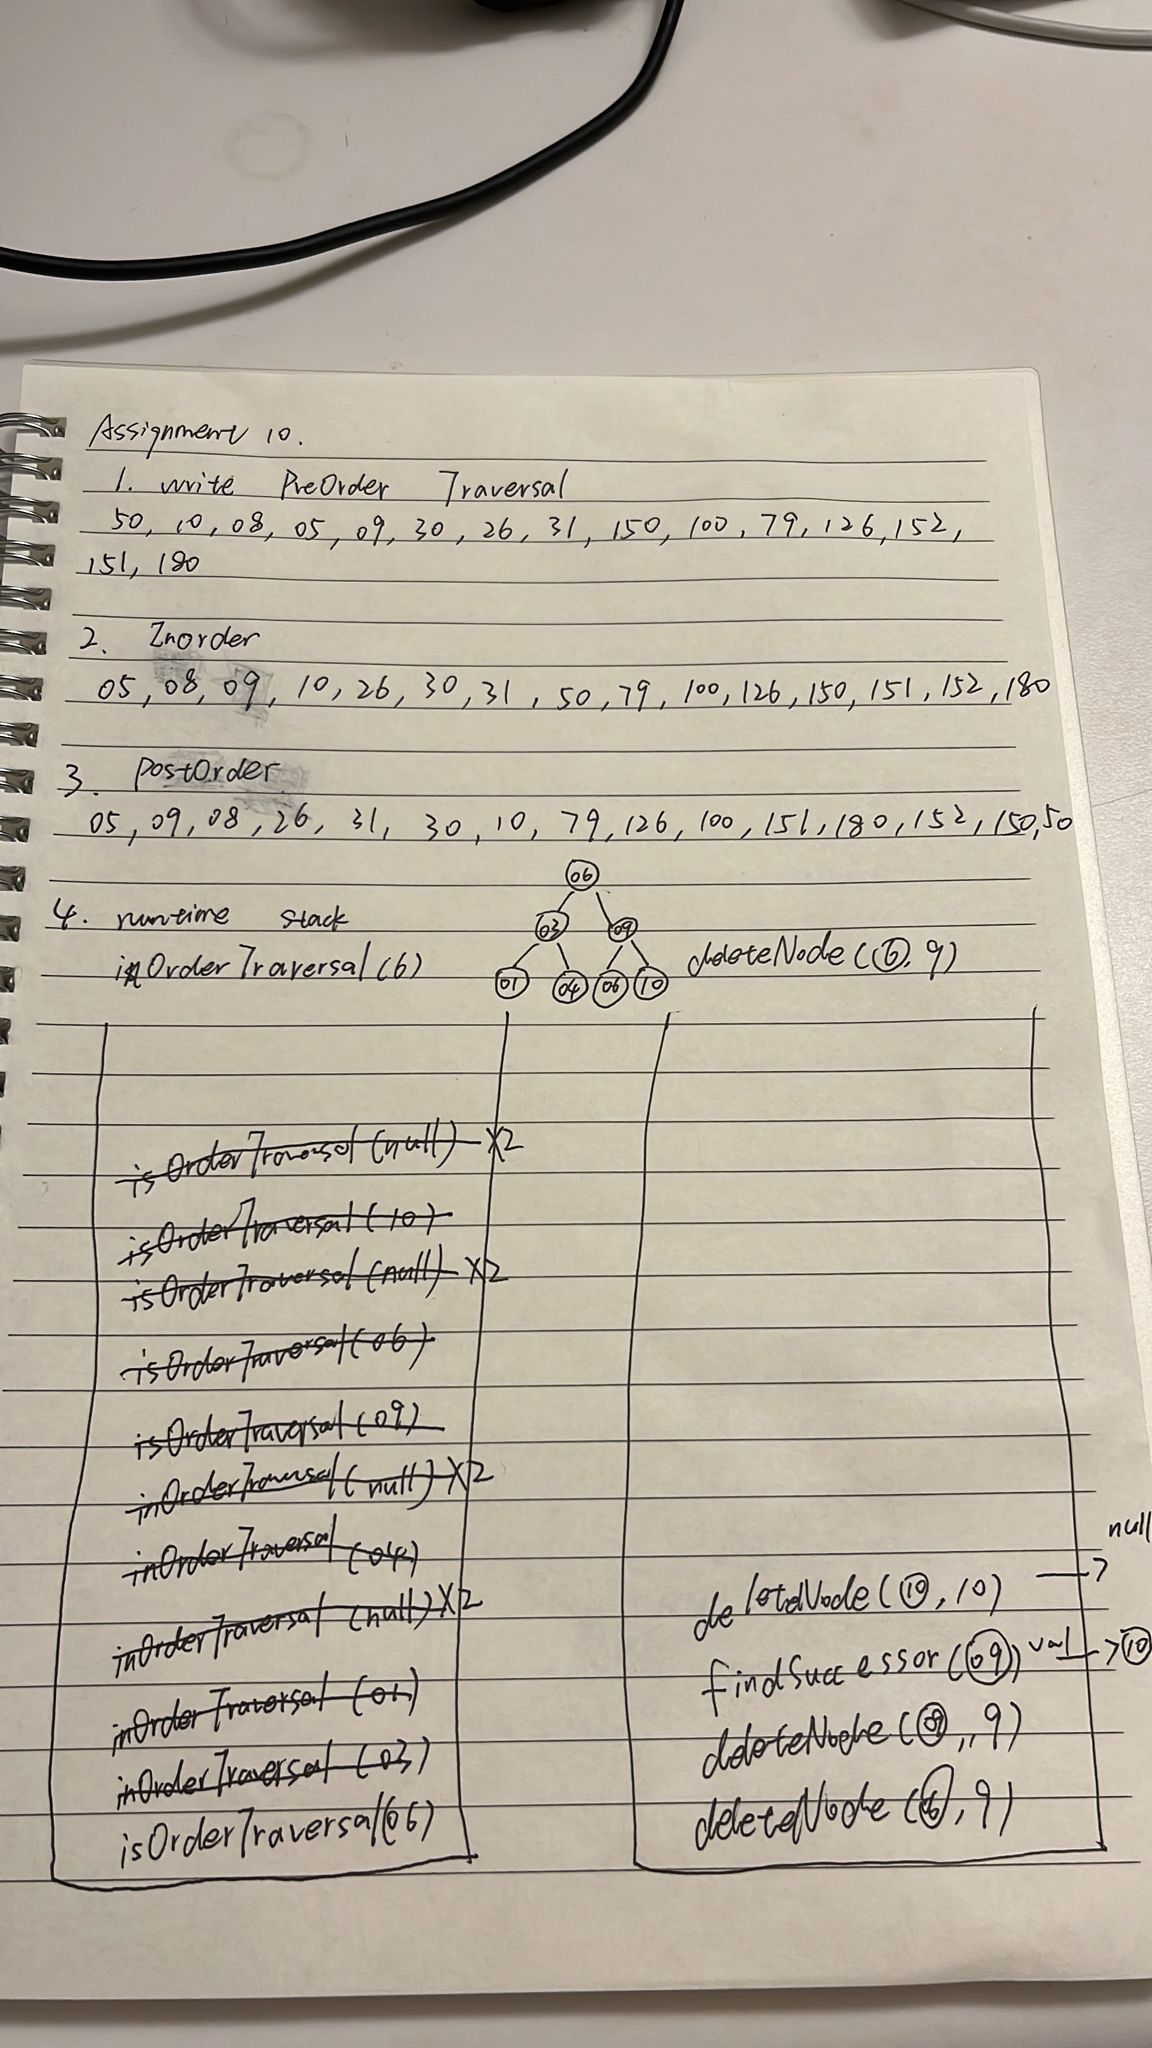 Assignment 10.
1. write PreOrder Traversal
50, 10, 08, 05, 09, 30, 26, 31, 150, 100, 79, 126, 152,
151, 180
2. Inorder
05, 08, 09, 10, 26, 30, 31, 50, 79, 100, 126, 150, 151, 152, 180
3. PostOrder
05, 09, 08, 26, 31, 30, 10, 79, 126, 100, 151, 180, 152, 150, 50
4. runtime stack
inOrderTraversal(6)
06
03 09
01 04 06 10
deleteNode(6, 9)
isOrderTraversal(null) X2
isOrderTraversal(10)
isOrderTraversal(null) X2
isOrderTraversal(06)
isOrderTraversal(09)
inOrderTraversal(null) X2
inOrderTraversal(04)
inOrderTraversal(null) X2
inOrderTraversal(01)
inOrderTraversal(03)
isOrderTraversal(06)
deleteNode(10, 10) → null
findSuccessor(09) val → 10
deleteNode(09, 9)
deleteNode(6, 9)